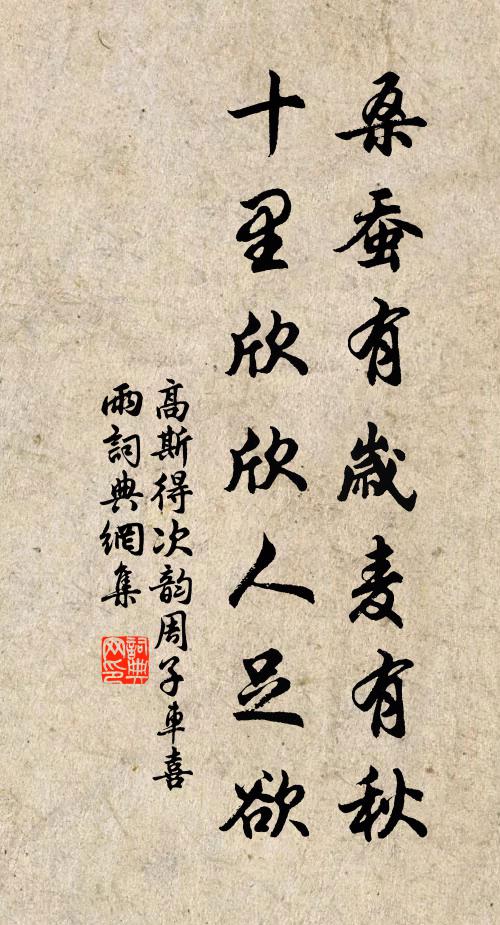 桑蚕有歲麦有秋
十里欣欣人足欲
高斯得次韵周子車喜
雨詞典網集
詞典网印